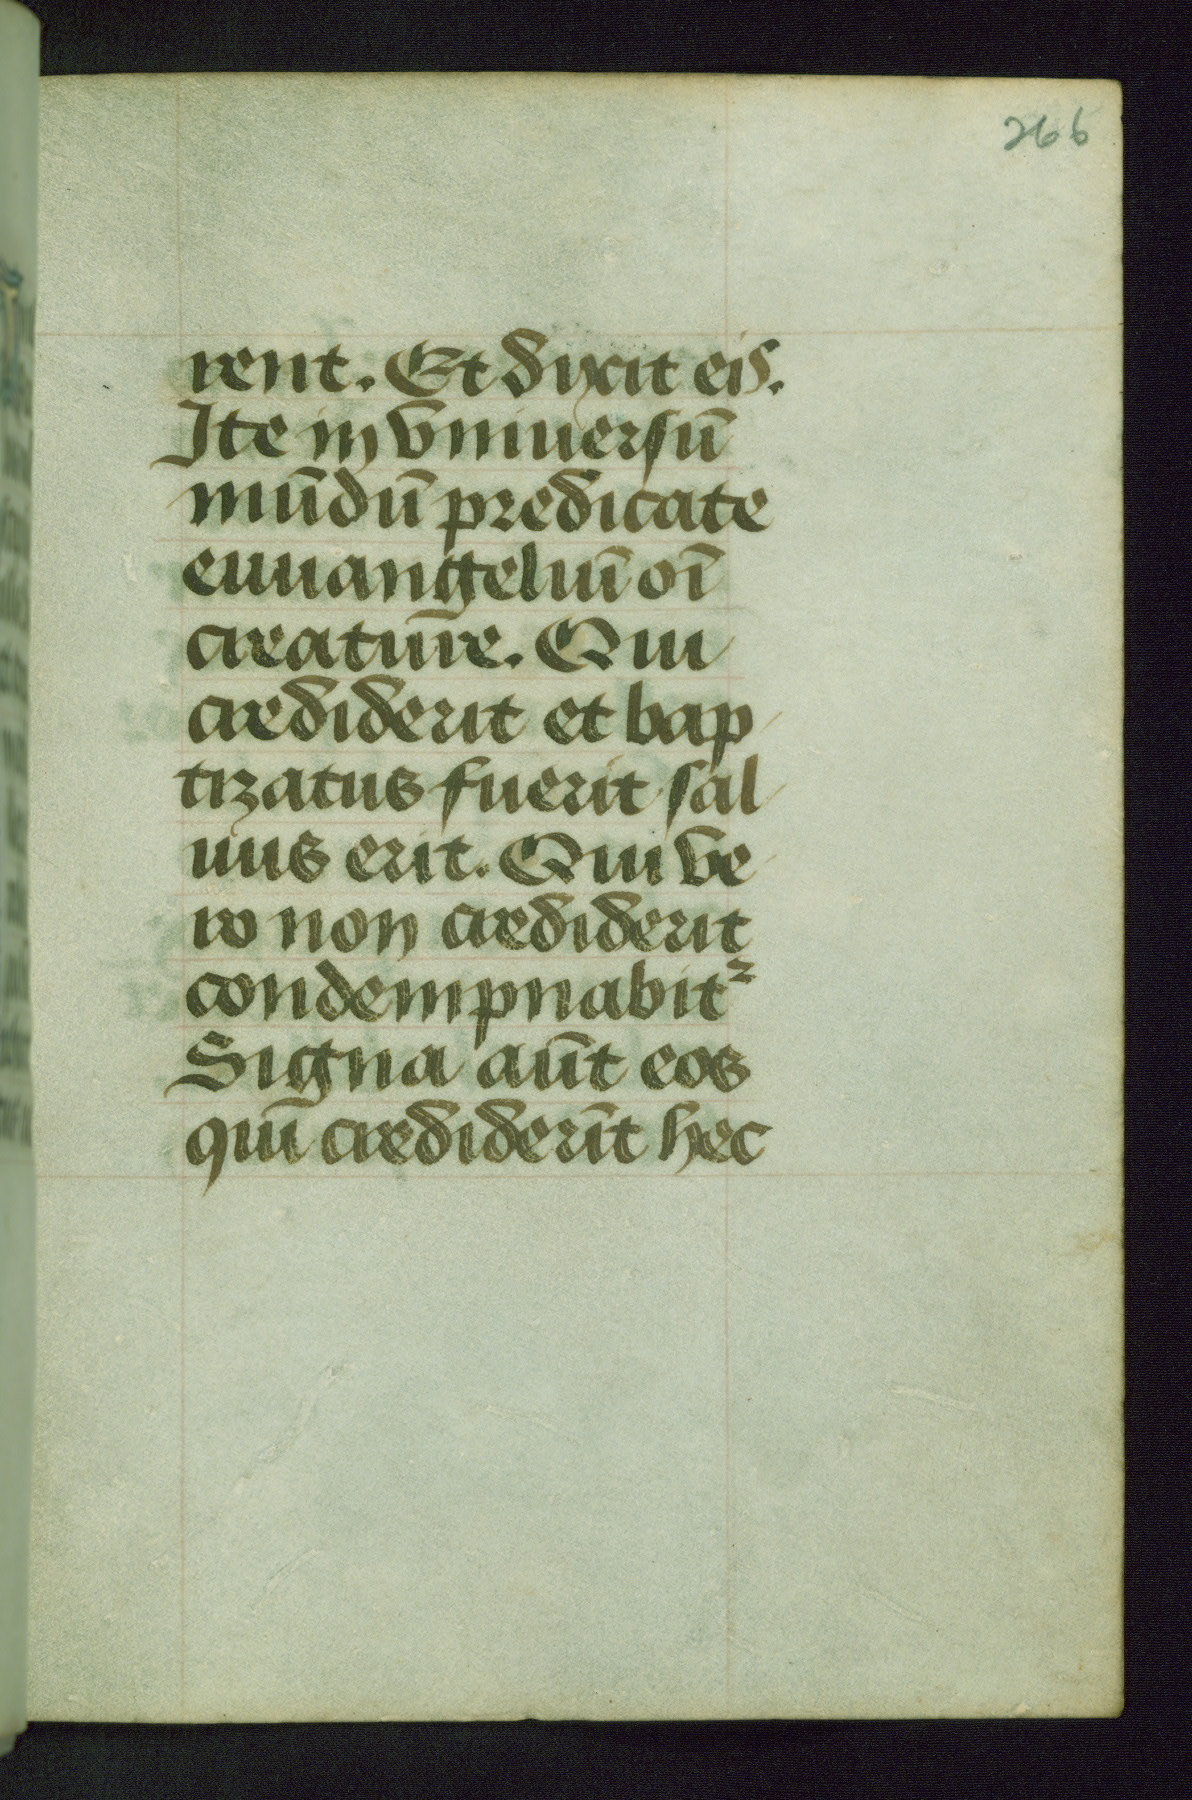 266
rent. Et dixit eis.
Ite in vniuersū
mūdū predicate
euuangeliū oī
creature. Qui
crediderit et bap
tizatus fuerit sal
uus erit. Qui ve
ro non crediderit
condempnabitᷣ
Signa aūt eos
qui crediderīt hec